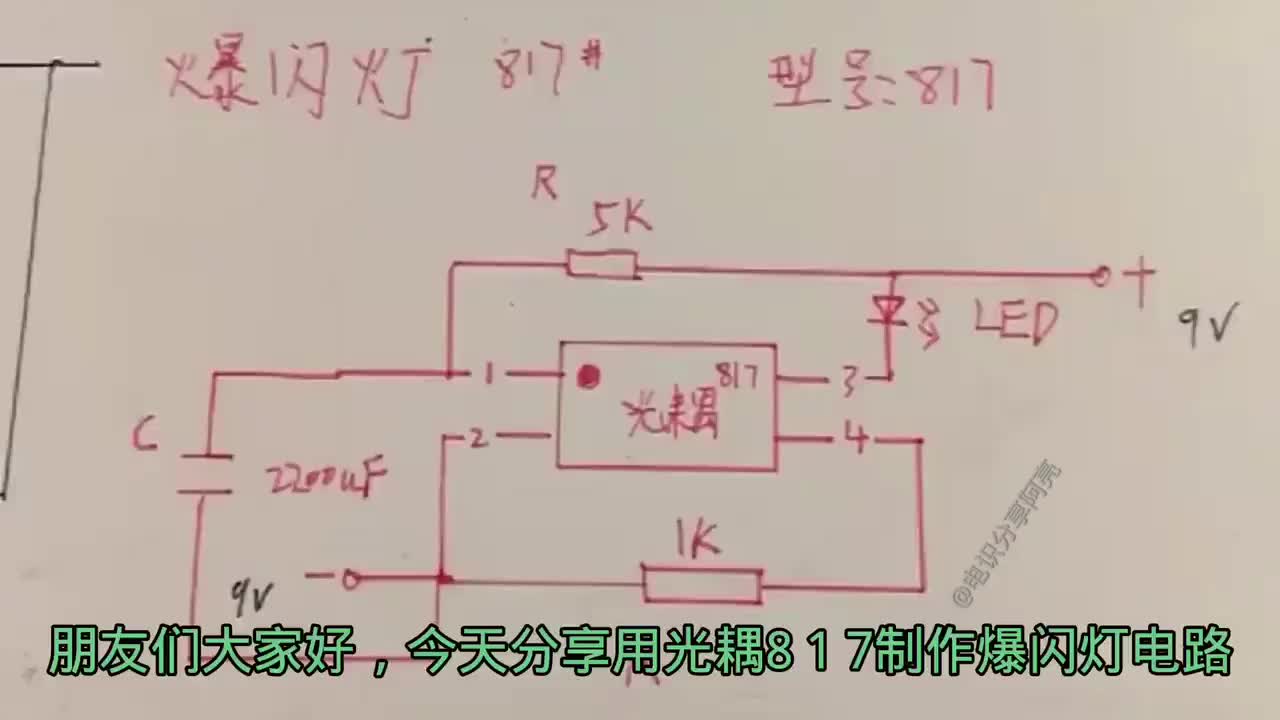 爆闪灯 817# 型号:817
R
5K
+
LED
9V
1
817
3
光耦
2
4
C
2200uF
1K
9V
-
@电识分享阿亮
朋友们大家好，今天分享用光耦817制作爆闪灯电路